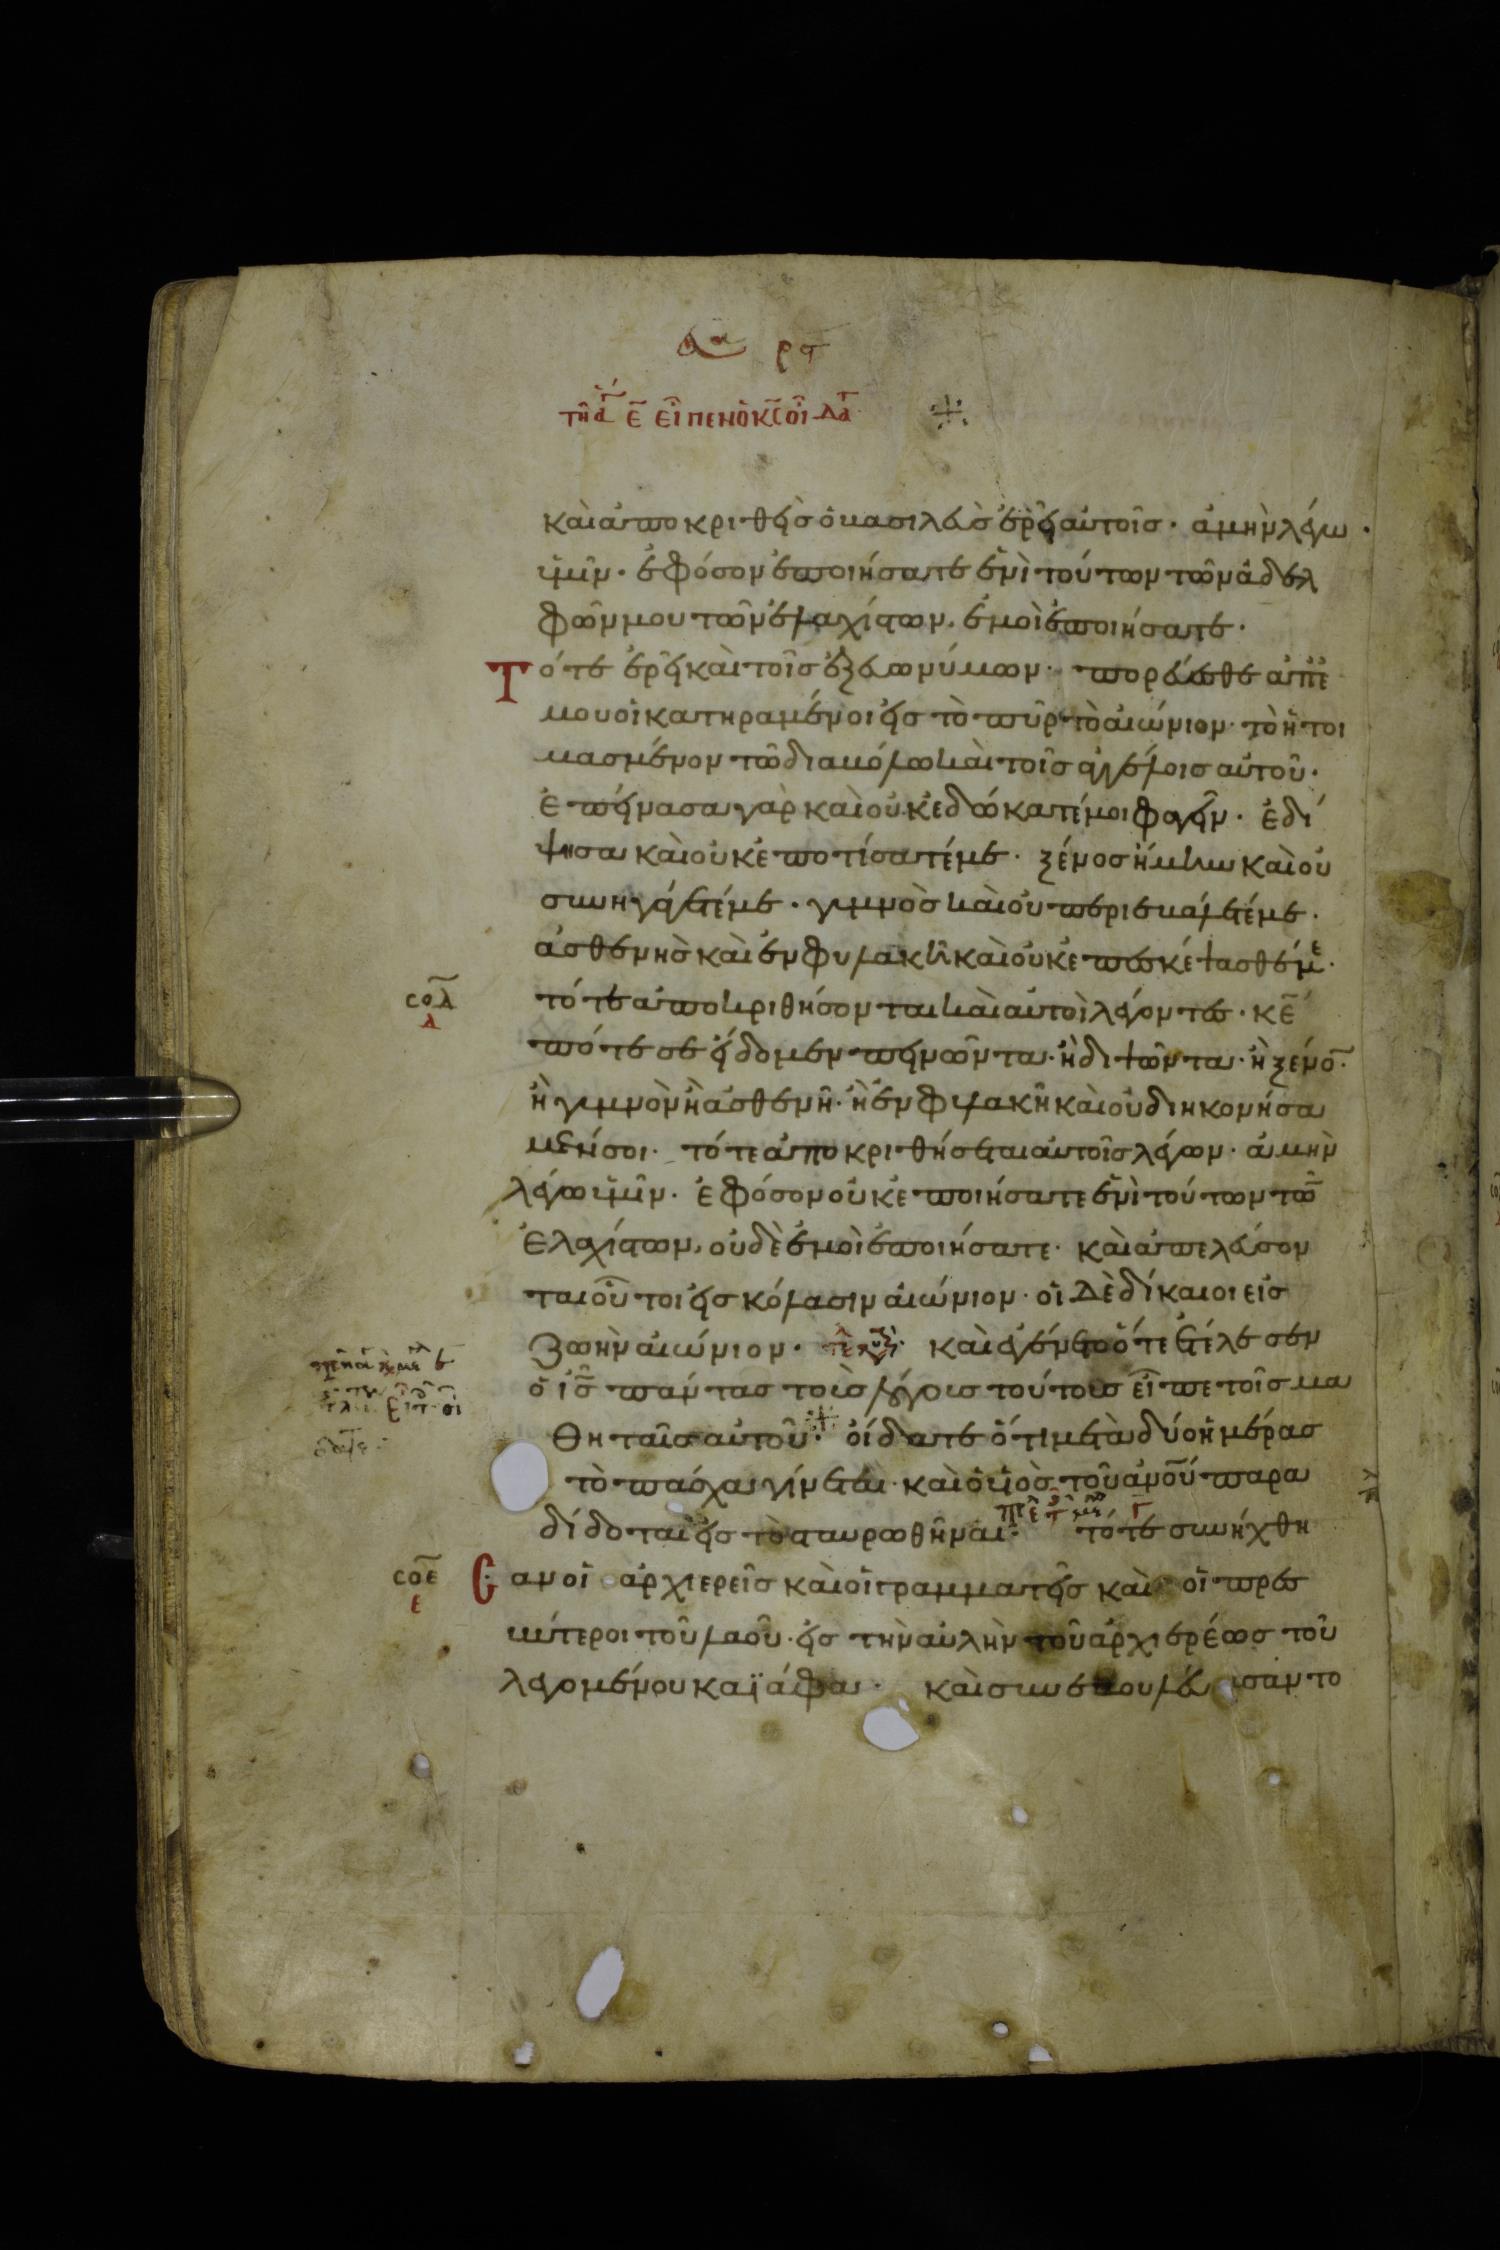 τῆ ε̄ εἶπεν ὁ κς̄ οἴδα
και ἀποκριθεὶς ὁ βασιλεὺς ἐρεῖ αὐτοῖς· ἀμὴν λέγω
ὑμῖν· ἐφόσον ἐποιήσατε ἐνὶ τούτων τῶν ἀδελ
φῶν μου τῶν ἐλαχίστων, ἐμοὶ ἐποιήσατε·
Τότε ἐρεῖ καὶ τοῖς ἐξ εὐωνύμων· πορεύεσθε ἀπ ἐ
μου οἱ κατηραμένοι εἰς τὸ πῦρ τὸ αἰώνιον· τὸ ἡτοι
μασμένον τῶ διαβόλω καὶ τοῖς ἀγγέλοις αὐτοῦ·
ἐπείνασα γὰρ καὶ οὐκ ἐδώκατέ μοι φαγεῖν· ἐδί
ψησα καὶ οὐκ ἐποτίσατέ με· ξένος ἤμην καὶ οὐ
συνηγάγετέ με· γυμνὸς καὶ οὐ περιεβάλετέ με·
ἀσθενὴς καὶ ἐν φυλακῆ καὶ οὐκ ἐπεσκέψασθέ με·
σοδ̄
δ
τότε ἀποκριθήσονται καὶ αὐτοὶ λέγοντες· κε̄
πότε σε εἴδομεν πεινῶντα· ἢ διψῶντα· ἢ ξένο̄·
ἢ γυμνὸν ἢ ἀσθενῆ· ἢ ἐν φυλακῆ καὶ οὐ διηκονήσα
μέν σοι· τότε ἀποκριθήσεται αὐτοῖς λέγων· ἀμὴν
λέγω ὑμῖν· ἐφόσον οὐκ ἐποιήσατε ἐνὶ τούτων τῶ̄
ἐλαχίστων, οὐδὲ ἐμοὶ ἐποιήσατε· καὶ ἀπελεύσον
ται οὗτοι εἰς κόλασιν αἰώνιον· οἱ δὲ δίκαιοι εἰς
ζωὴν αἰώνιον· καὶ ἐγένετο ὅτε ἐτέλεσεν
ὁ ις̄ πάντας τοὺς λόγους τούτους εἶπε τοῖς μα
θηταῖς αὐτοῦ· οἴδατε ὅτι μετὰ δύο ἡμέρας
τὸ πάσχα γίνεται· καὶ ὁ υἱὸς τοῦ ἀνο̄υ παρα
δίδοται εἰς τὸ σταυρωθῆναι· τότε συνήχθη
σοε̄
ε
σαν οἱ ἀρχιερεῖς καὶ οἱ γραμματεῖς καὶ οἱ πρεσ
βύτεροι τοῦ λαοῦ· εἰς τὴν αὐλὴν τοῦ ἀρχιερέως τοῦ
λεγομένου καϊάφα· καὶ συνεβουλεύσαντο